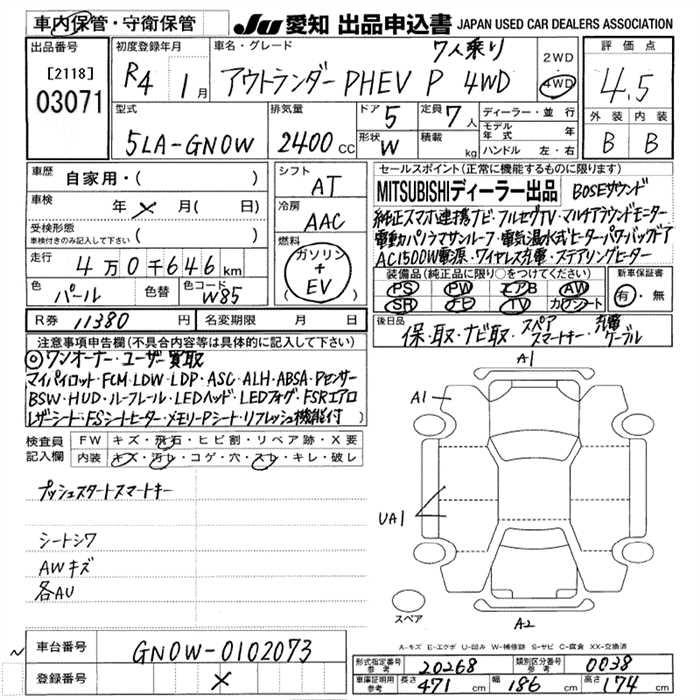 車内保管・守衛保管 JU 愛知 出品申込書 JAPAN USED CAR DEALERS ASSOCIATION
出品番号 初度登録年月 車名・グレード 7人乗り 2WD 評価点
[2118] R4 1月 アウトランダーPHEV P 4WD 4WD 4.5
03071
型式 排気量 ドア 5 定員 7人 ディーラー・並行 外装 内装
5LA-GN0W 2400cc 形状 W 積載 kg モデル年式 年 B B
ハンドル 左・右
車歴 自家用・( ) シフト AT セールスポイント(正常に機能するものに限ります)
車検 年 月( 日) 冷房 AAC MITSUBISHIディーラー出品 BOSEサウンド
受検形態 純正スマホ連携ナビ・フルセグTV・マルチアラウンドモニター
車検付きのみ記入して下さい ( ) 燃料 電動パノラマサンルーフ・電気温水式ヒーター・パワーバックドア
走行 4万0千646km ガソリン+EV AC1500W電源・ワイヤレス充電・ステアリングヒーター
色 パール 色替 色コード W85 装備品(純正品に限り○をつけてください) 新車保証書
PS PW エアB AW 有・無
SR ナビ TV カワシート
R券 11380円 名変期限 月 日 後日品 保・取・ナビ取・スペアスマートキー・充電ケーブル
注意事項申告欄(不具合内容等は具体的に記入して下さい)
◎ワンオーナー・ユーザー買取
マイパイロット・FCM・LDW・LDP・ASC・ALH・ABSA・Pセンサー
BSW・HUD・ルーフレール・LEDヘッド・LEDフォグ・FSRエアロ
レザーシート・FSシートヒーター・メモリーPシート・リフレッシュ機能付
検査員記入欄 FW キズ・飛石・ヒビ割・リペア跡・X要
内装 キズ・汚レ・コゲ・穴・スレ・キレ・破レ
プッシュスタートスマートキー
シートシワ
AWキズ
各AU
A1
A1
UA1
スペア
A2
A-キズ E-エクボ U-凹み W-補修跡 S-サビ C-腐食 XX-交換済
車台番号 GN0W-0102073
登録番号
形式指定番号 参考 20268 類別区分番号 参考 0038
車庫証明用 参考 長さ 471cm 幅 186cm 高さ 174cm